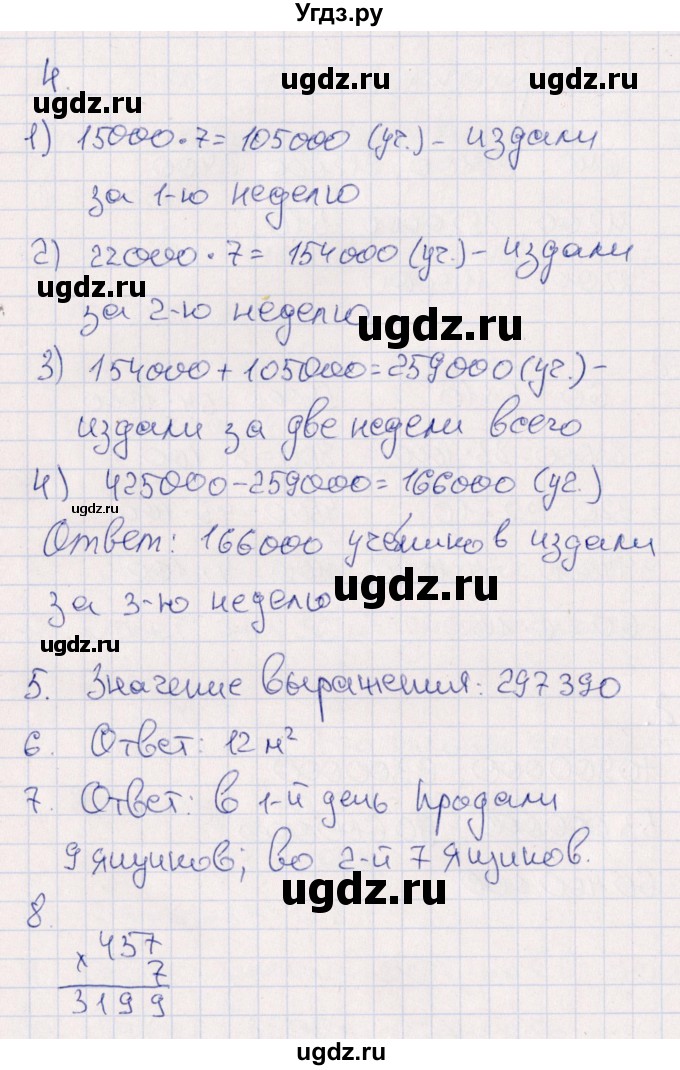 Угдз.ру
4.
ugdz.ru
ugdz.ru
1) 15000·7=105000 (уч.) - издали
за 1-ю неделю
2) 22000·7=154000 (уч.) - издали
ugdz.ru
за 2-ю неделю
ugdz.ru
3) 154000+105000=259000 (уч.) -
издали за две недели всего
4) 425000-259000=166000 (уч.)
ugdz.ru
Ответ: 166000 издали
ugdz.ru
за 3-ю неделю
ugdz.ru
5. Значение выражения: 297390
6. Ответ: 12 м²
7. Ответ: в 1-й день продали
9 ящиков; во 2-й 7 ящиков.
ugdz.ru
8.
457
x 7
3199
ugdz.ru